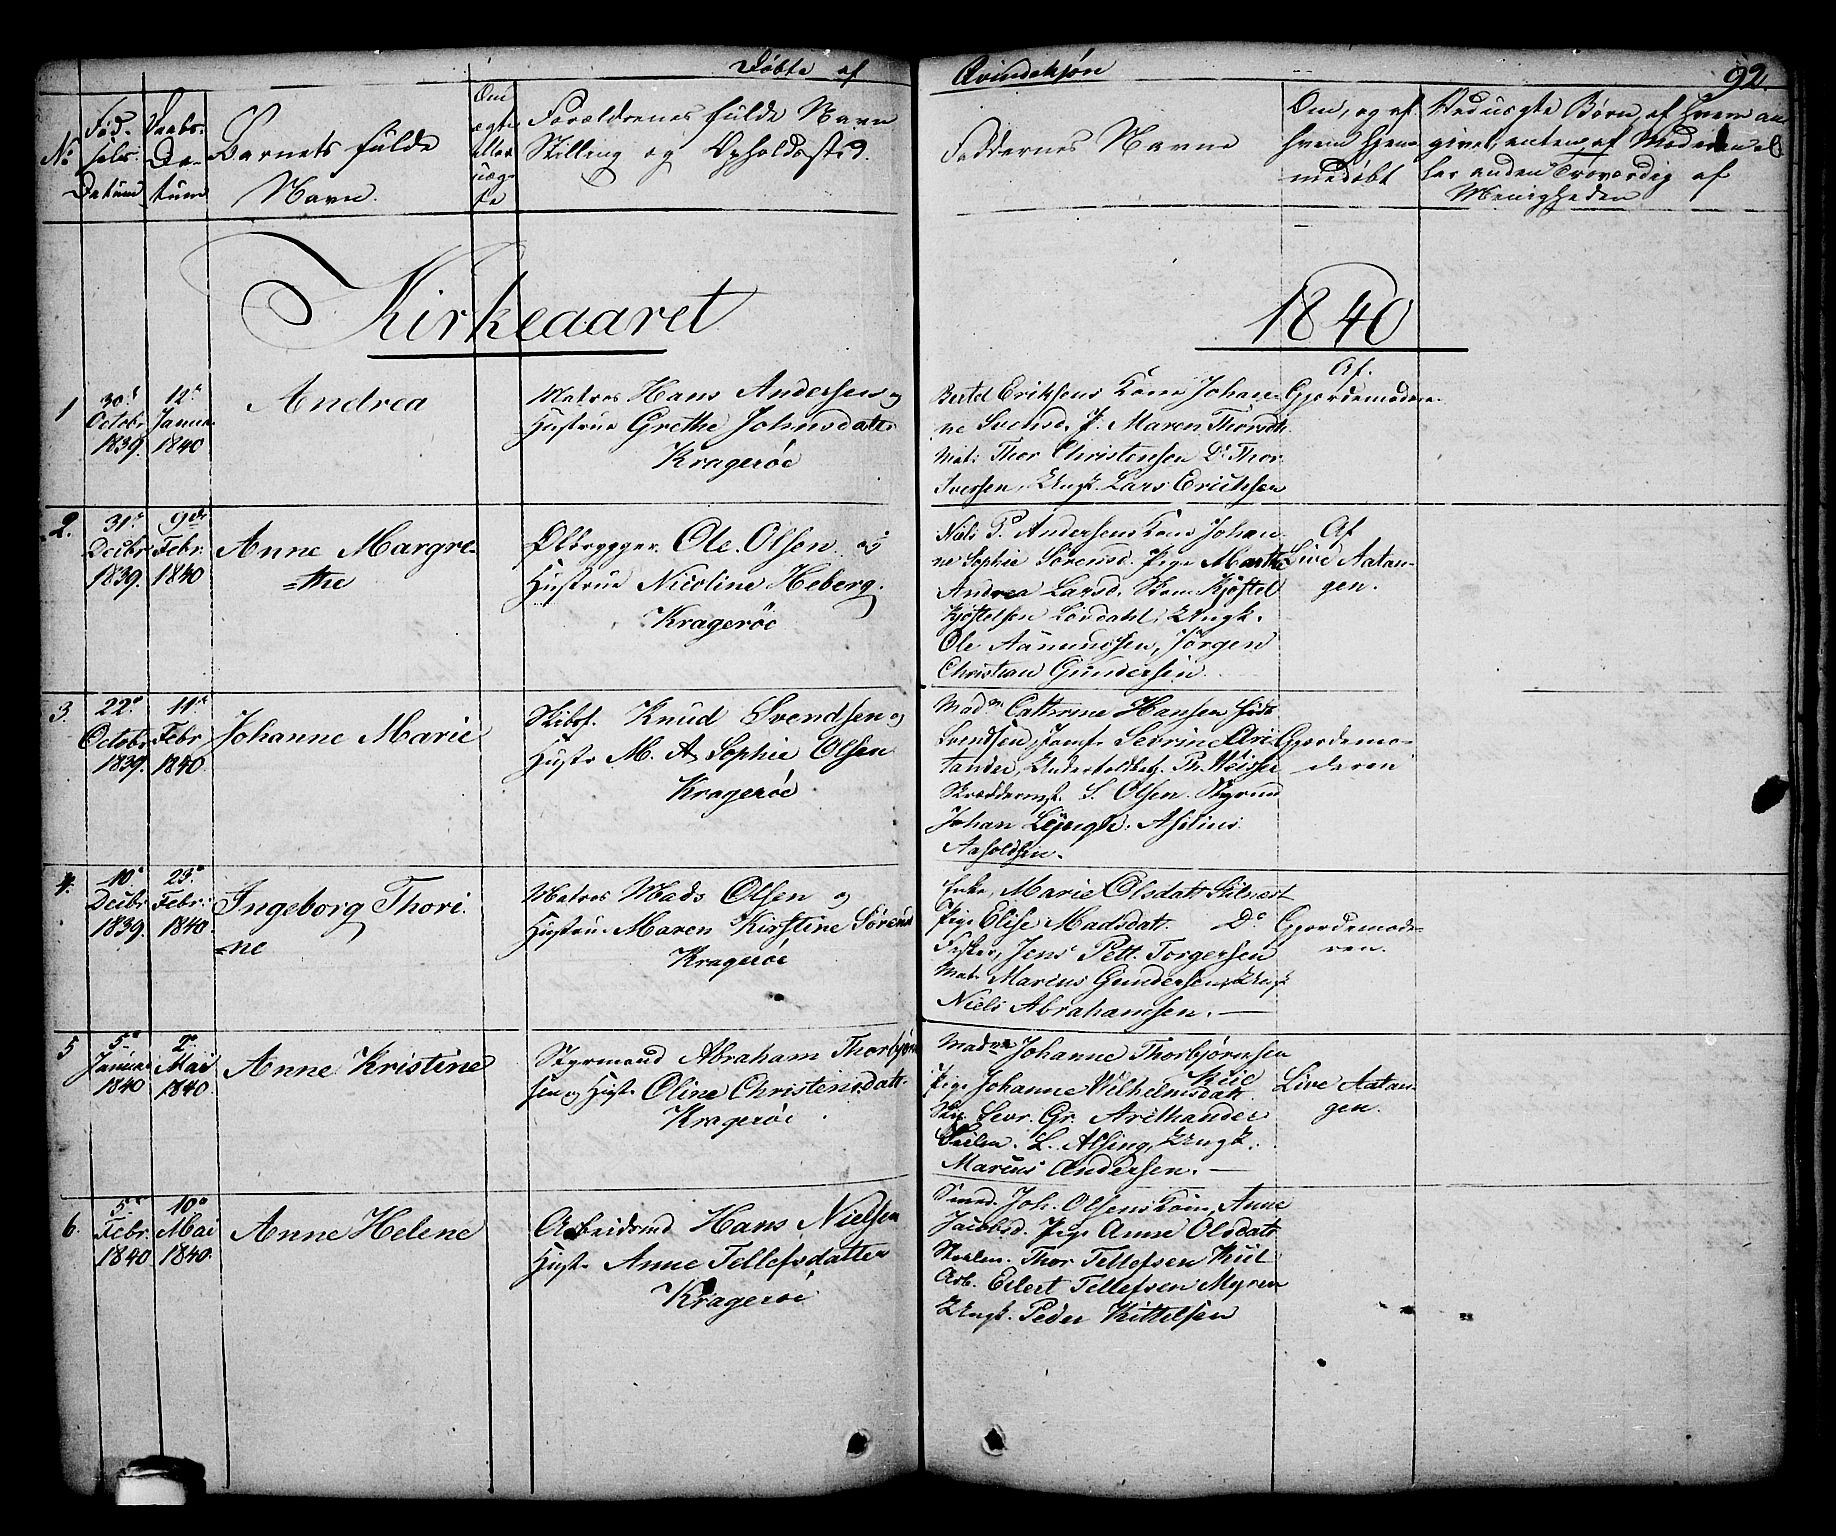 Døbte af Qvindekjøn 92.
No
Fød-
sels-
Datum
Daabs-
Da-
tum
Barnets fulde
Navn.
Om
ægte
eller
uæg-
te
Forældrenes fulde Navn
Stilling og Opholdssted.
Faddernes Navne
Om, og af
hvem hjem-
medøbt
Ved uægte Børn, af hvem an-
givet, enten af Moderen el-
ler anden Troværdig af
Menigheden
Kirkeaaret 1840
1
30d
Octobr
1839.
12te
Januar
1840
Andrea
Matros Hans Andersen og
Hustrue Grethe Johnsdatter
Kragerøe
Bertel Eriksens Kone Johan-
ne Svensd. P. Maren Thorsdt.
Mat. Thor Christensen Do Thor
Iversen, Ungk. Lars Erichsen
Af.
Gjordemoderen
2.
31te
Decbr
1839.
9de
Febr.
1840
Anne Margre-
the
Ølbrygger Ole Olsen og
Hustrue Nicoline Heberg.
Kragerøe
Niels P. Andersens Kone Johan-
ne Sophie Sørensd. Pige Marthe
Andrea Larsd. Kjøstel
Kjøstelsen Lørdahl, Ungk.
Ole Aanundsen, Jørgen
Christian Gundersen
Af
Live Aatan-
gen.
3.
22de
Octobr
1839.
11te
Febr
1840.
Johanne Marie
Skibsf. Knud Svendsen og
Hustr. M. A. Sophie Olsen
Kragerøe
Madm Cathrine Hansen født
Svendsen, Jomf. Sevrine Ari-
tander, Th. Weisser
S. Olsen. Styrmd
Johan Asilius
Aasoldsen.
Gjordemo-
deren
4.
10de
Decbr
1839.
23de
Febr.
1840.
Ingeborg Thori-
ne
Matros Mads Olsen og
Hustrue Maren Kirstine Sørensd
Kragerøe
Enke, Marie Olsdatt
Pige Elise Madsdat. Do
Fisker, Jens Pett. Torgersen
Mat. Marius Gundersen, Ungk
Niels Abrahamsen.
Gjordemode-
ren.
5
5te
Januar
1840
2de
Mai
1840.
Anne Kristine
Styrmand Abraham Thorbjørn-
sen og Hust. Oline Christensdatt.
Kragerøe
Madme Johanne Thorbjørnsen
Kiil
Pige Johanne Wilhelmsdatt.
Sevr. Gr. Arethander
L. Alsing, Ungk.
Marius Andersen.
Live Aatan-
gen.
6.
5te
Febr.
1840
10de
Mai
1840.
Anne Helene
Arbeidsmd Hans Nielsen
Hust. Anne Tellefsdatter
Kragerøe
Smed Joh. Olsens Kone, Anne
Jacobsd. Pige Anne Olsdatt
Thor Tellefsen Kiil
Arb. Eilert Tellefsen Myren
Ungk. Peder Kittelsen